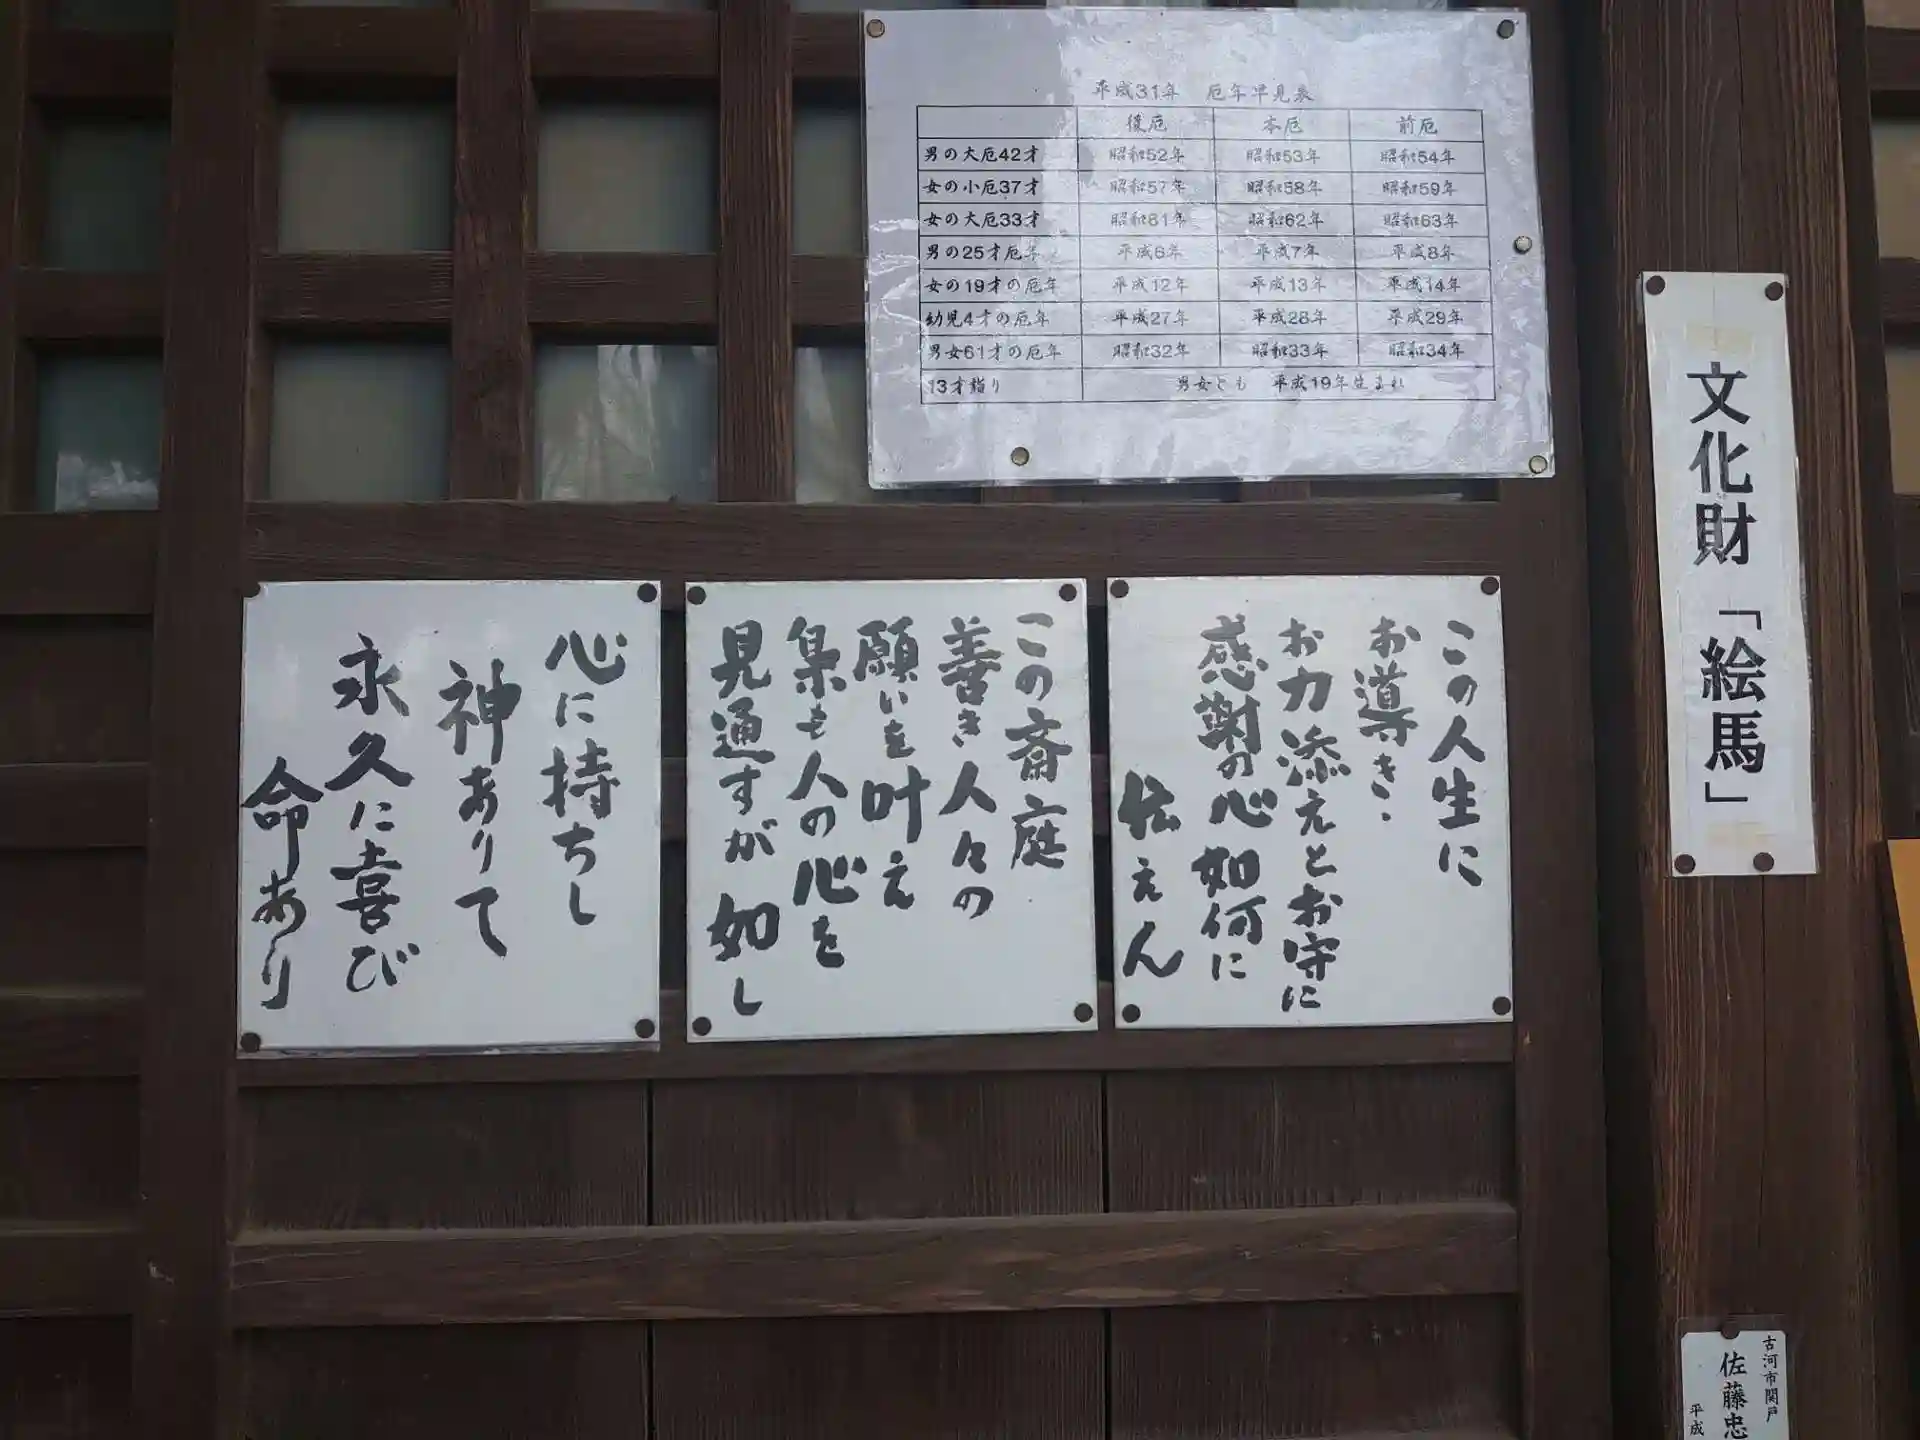 平成31年 厄年早見表
後厄 本厄 前厄
男の大厄42才 昭和52年 昭和53年 昭和54年
女の小厄37才 昭和57年 昭和58年 昭和59年
女の大厄33才 昭和61年 昭和62年 昭和63年
男の25才厄年 平成6年 平成7年 平成8年
女の19才の厄年 平成12年 平成13年 平成14年
幼児4才の厄年 平成27年 平成28年 平成29年
男女61才の厄年 昭和32年 昭和33年 昭和34年
13才詣り 男女とも 平成19年生まれ
文化財「絵馬」
この人生に
お導き、
お力添えとお守に
感謝の心如何に
伝えん
この斎庭
善き人々の
願いを叶え
梟も人の心を
見通すが如し
心に持ちし
神ありて
永久に喜び
命あり
古河市関戸
佐藤忠
平成